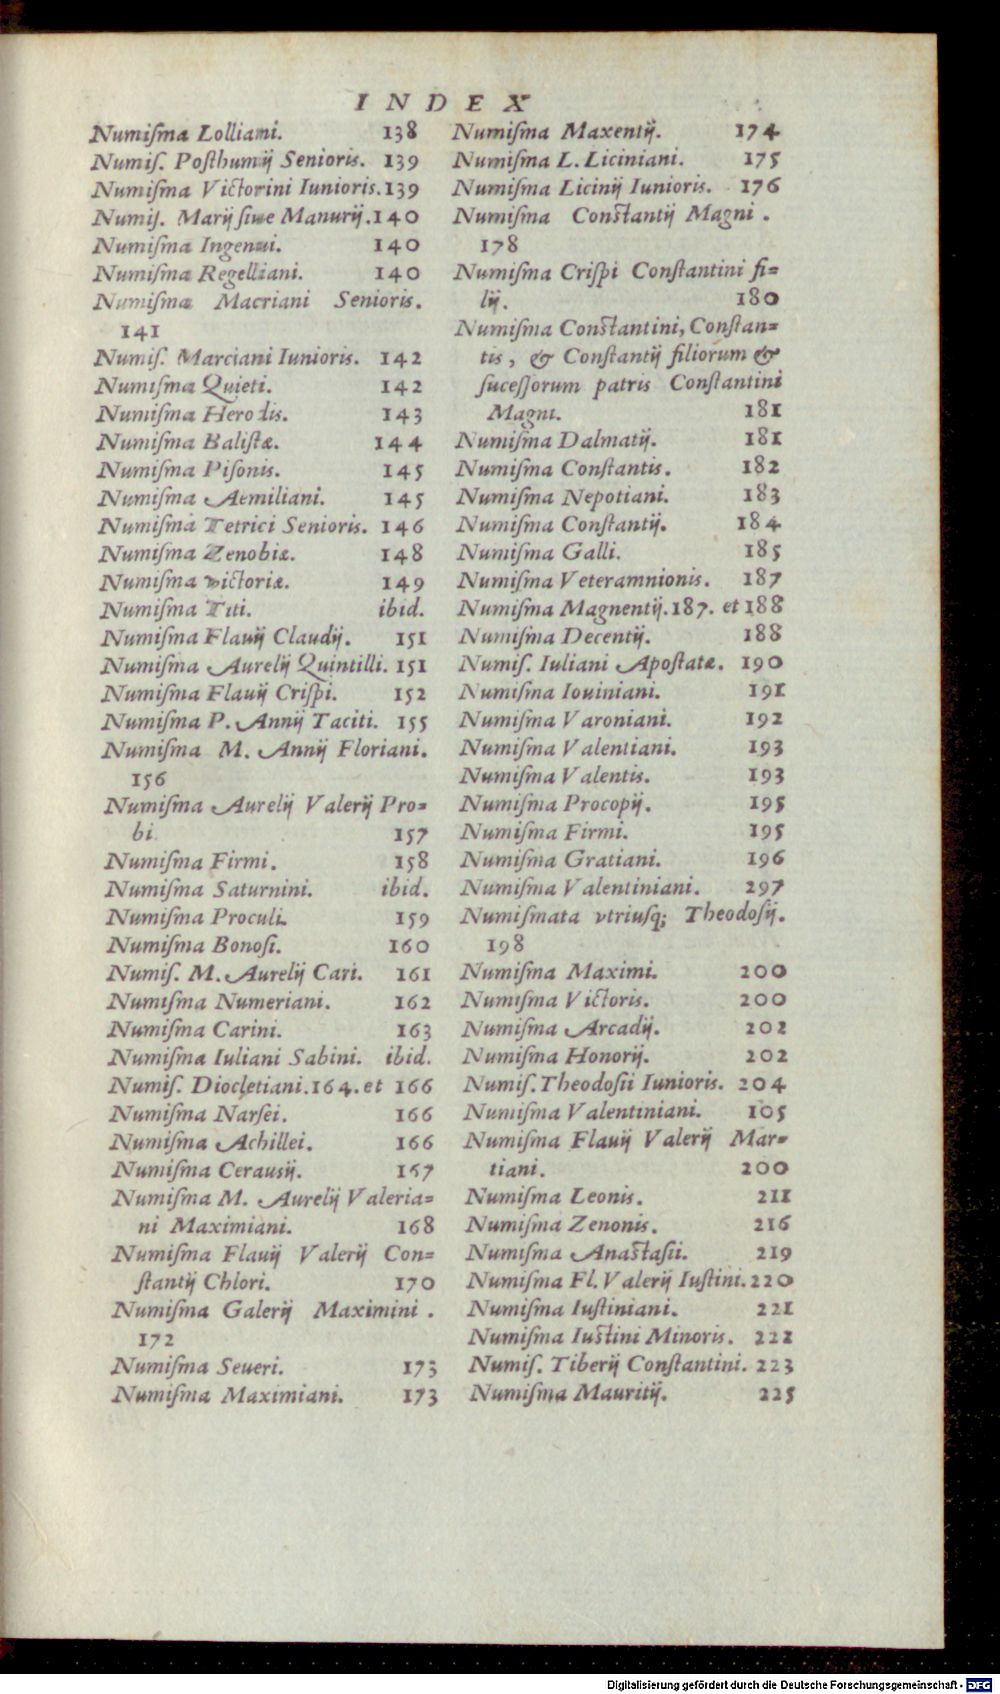 INDEX
Numiſma Lolliani. 138
Numiſ. Poſthumij Senioris. 139
Numiſma Victorini Iunioris. 139
Numiſ. Marij ſiue Manurij. 140
Numiſma Ingenui. 140
Numiſma Regelliani. 140
Numiſma Macriani Senioris.
141
Numiſ. Marciani Iunioris. 142
Numiſma Quieti. 142
Numiſma Herodis. 143
Numiſma Baliſtæ. 144
Numiſma Piſonis. 145
Numiſma Aemiliani. 145
Numiſma Tetrici Senioris. 146
Numiſma Zenobiæ. 148
Numiſma victoriæ. 149
Numiſma Titi. ibid.
Numiſma Flauij Claudij. 151
Numiſma Aurelij Quintilli. 151
Numiſma Flauij Criſpi. 152
Numiſma P. Annij Taciti. 155
Numiſma M. Annij Floriani.
156
Numiſma Aurelij Valerij Pro=
bi. 157
Numiſma Firmi. 158
Numiſma Saturnini. ibid.
Numiſma Proculi. 159
Numiſma Bonoſi. 160
Numiſ. M. Aurelij Cari. 161
Numiſma Numeriani. 162
Numiſma Carini. 163
Numiſma Iuliani Sabini. ibid.
Numiſ. Diocletiani. 164. et 166
Numiſma Narſei. 166
Numiſma Achillei. 166
Numiſma Cerausij. 167
Numiſma M. Aurelij Valeria=
ni Maximiani. 168
Numiſma Flauij Valerij Con=
ſtantij Chlori. 170
Numiſma Galerij Maximini.
172
Numiſma Seueri. 173
Numiſma Maximiani. 173
Numiſma Maxentij. 174
Numiſma L. Liciniani. 175
Numiſma Licinij Iunioris. 176
Numiſma Conſtantij Magni.
178
Numiſma Criſpi Conſtantini fi=
lij. 180
Numiſma Conſtantini, Conſtan=
tis, & Conſtantij filiorum &
ſuceſſorum patris Conſtantini
Magni. 181
Numiſma Dalmatij. 181
Numiſma Conſtantis. 182
Numiſma Nepotiani. 183
Numiſma Conſtantij. 184
Numiſma Galli. 185
Numiſma Veteramnionis. 187
Numiſma Magnentij. 187. et 188
Numiſma Decentij. 188
Numiſ. Iuliani Apoſtatæ. 190
Numiſma Iouiniani. 191
Numiſma Varoniani. 192
Numiſma Valentiani. 193
Numiſma Valentis. 193
Numiſma Procopij. 195
Numiſma Firmi. 195
Numiſma Gratiani. 196
Numiſma Valentiniani. 297
Numiſmata vtriuſq; Theodoſij.
198
Numiſma Maximi. 200
Numiſma Victoris. 200
Numiſma Arcadij. 202
Numiſma Honorij. 202
Numiſ. Theodoſii Iunioris. 204
Numiſma Valentiniani. 105
Numiſma Flauij Valerij Mar=
tiani. 200
Numiſma Leonis. 211
Numiſma Zenonis. 216
Numiſma Anaſtaſii. 219
Numiſma Fl. Valerij Iuſtini. 220
Numiſma Iuſtiniani. 221
Numiſma Iuſtini Minoris. 222
Numiſ. Tiberij Conſtantini. 223
Numiſma Mauritij. 225
Digitalisierung gefördert durch die Deutsche Forschungsgemeinschaft - DFG